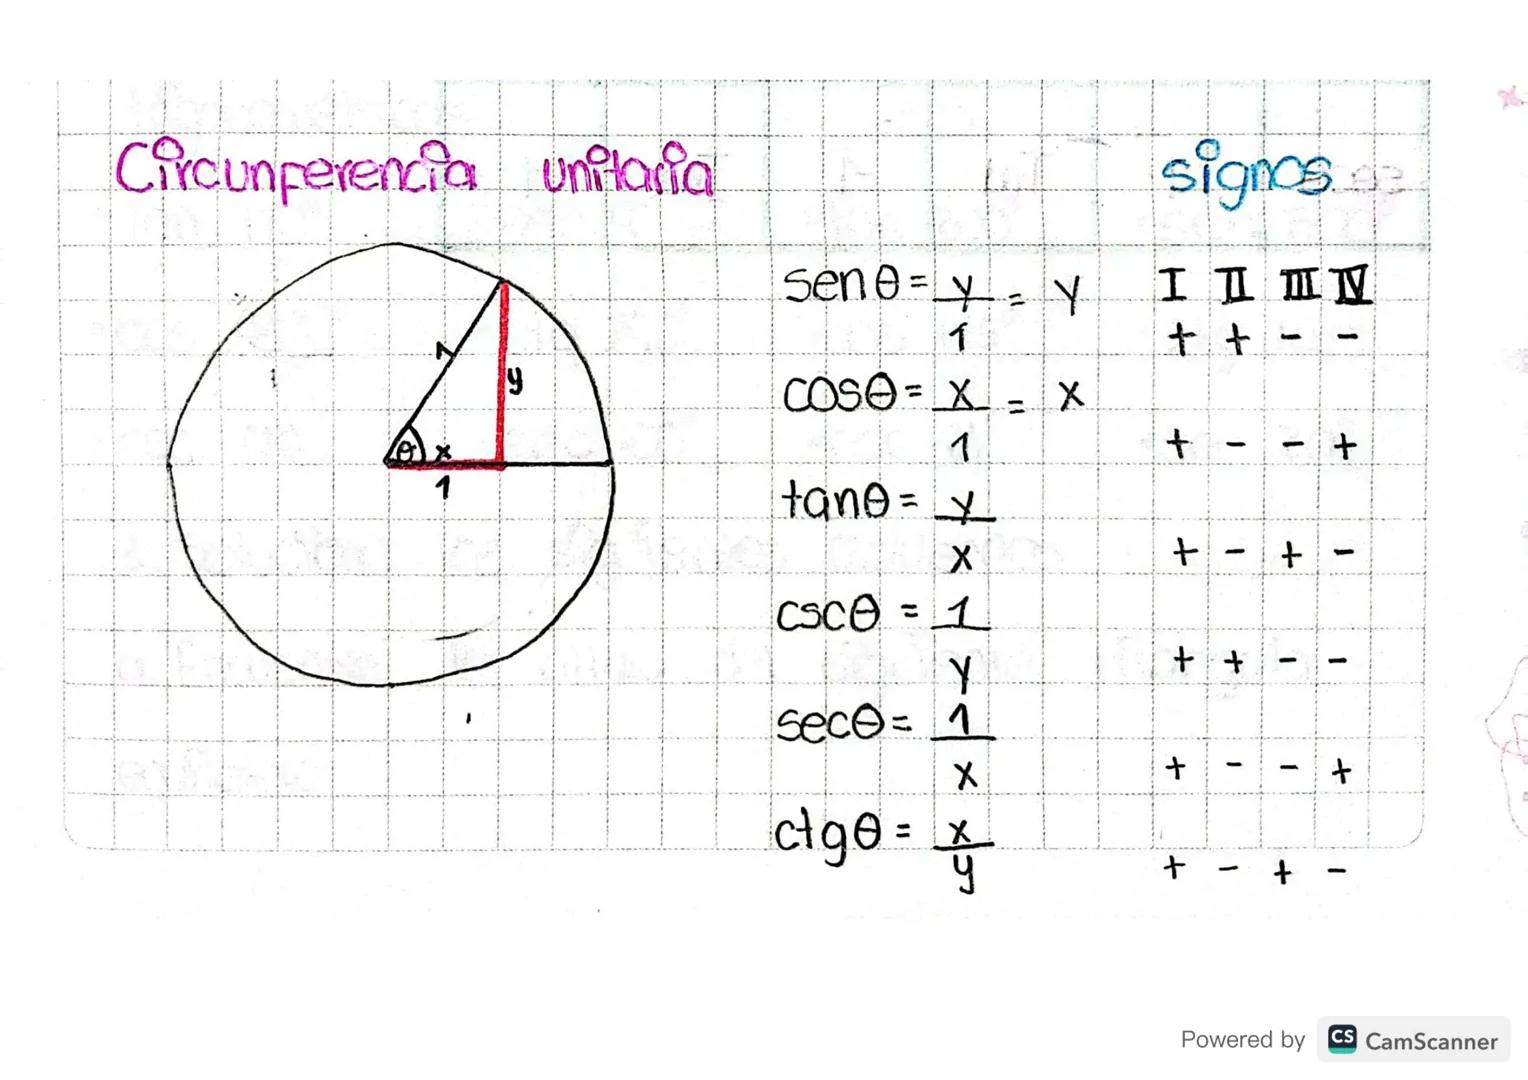 Circunferencia unitaria
signos
1
y
θ x
1
senθ = y/1 = y
I II III IV
+ + - -
cosθ = x/1 = x
+ - - +
tanθ = y/x
+ - + -
cscθ = 1/y
+ + - -
secθ = 1/x
+ - - +
ctgθ = x/y
+ - + -
Powered by CS CamScanner